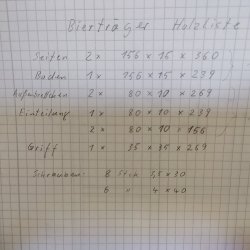 Bierträger Holzliste
Seiten 2 x 156 x 15 x 360
Boden 1 x 156 x 15 x 239
Außenbrettchen 2 x 80 x 10 x 269
Einteilung 1 x 80 x 10 x 239
2 x 80 x 10 x 156
Griff 1 x 35 x 35 x 269
Schrauben: 8 Stck 3,5 x 30
6 " 4 x 40